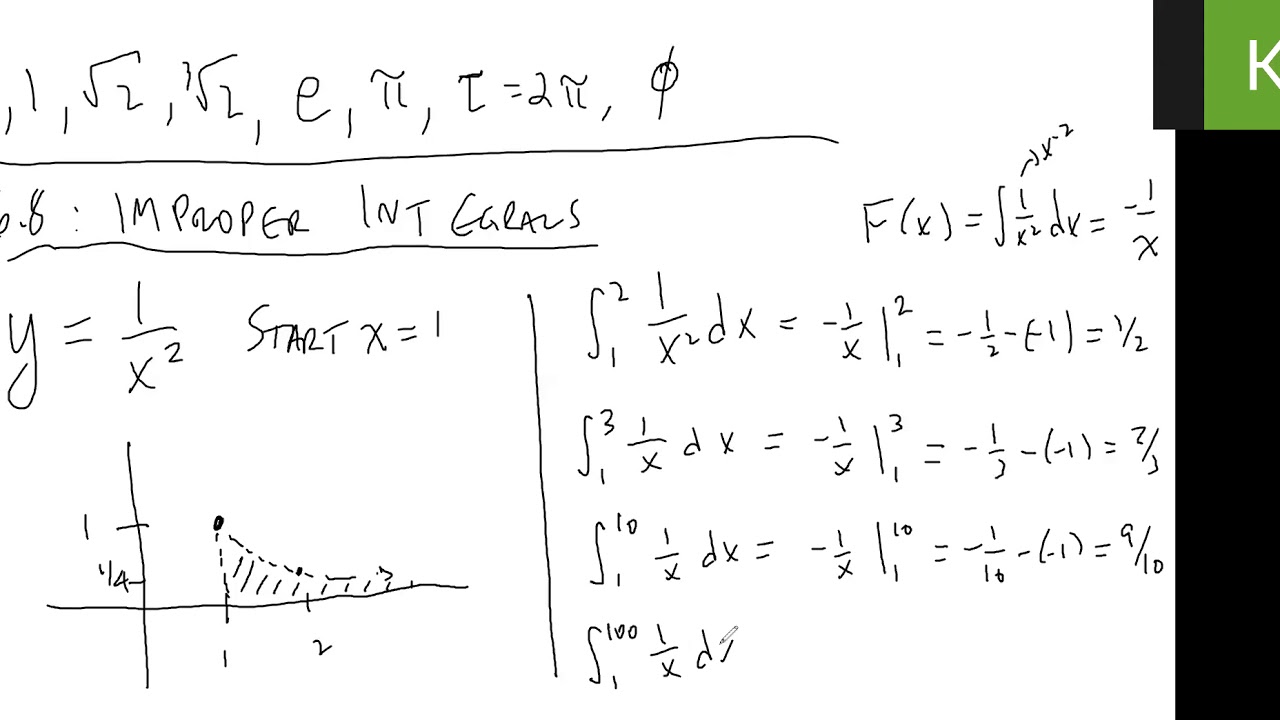 , 1, √2, ³√2, e, π, τ = 2π, φ
6.8 : IMPROPER INTEGRALS
y = 1/x² START x = 1
1
1/4
1 2
→ x⁻²
F(x) = ∫ 1/x² dx = -1/x
∫₁² 1/x² dx = -1/x |₁² = -1/2 - (-1) = 1/2
∫₁³ 1/x dx = -1/x |₁³ = -1/3 - (-1) = 2/3
∫₁¹⁰ 1/x dx = -1/x |₁¹⁰ = -1/10 - (-1) = 9/10
∫₁¹⁰⁰ 1/x dx
K